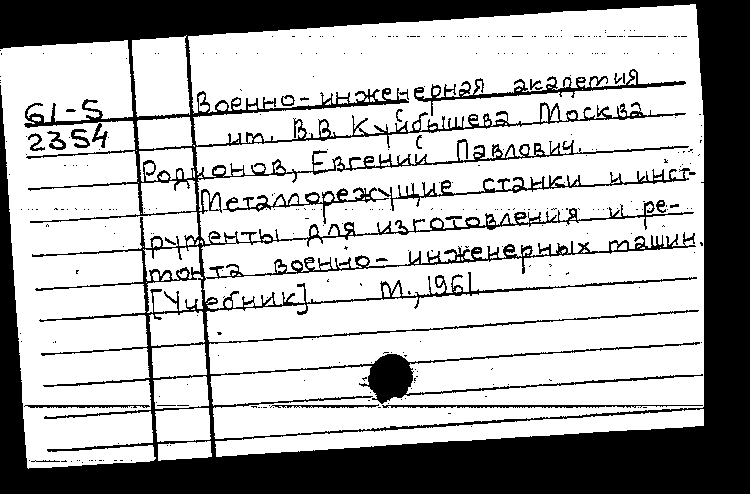 Военно-инженерная академия
61-5
2354
им. В.В. Куйбышева. Москва.
Родионов, Евгений Павлович.
Металлорежущие станки и инст-
рументы для изготовления и ре-
монта военно-инженерных машин.
[Учебник]. М., 1961